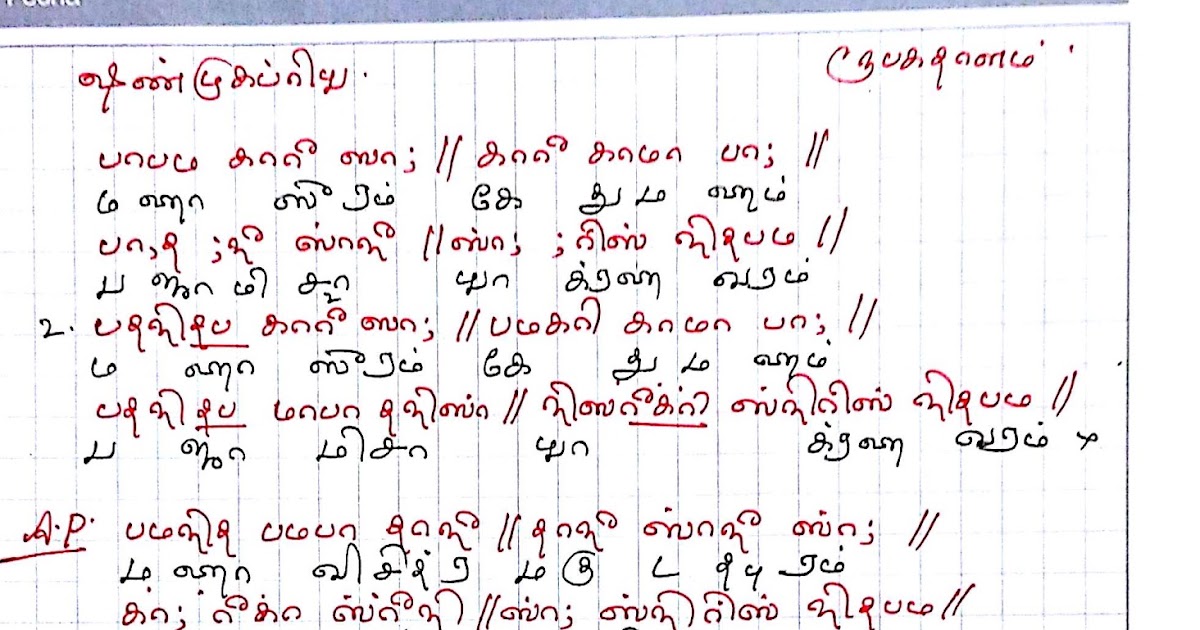 ஷண்முகப்ரிய. ரூபகதாளம்
பாபம காரீ ஸா; // காரீ காமா பா; //
ம ஹா ஸுரம் கே து ம ஹம்
பா,த ;நீ ஸ்ாநீ // ஸ்ா; ;ரிஸ் நிதபம //
ப ஜா மி சா யா க்ரஹ வரம்
2. பதநிதப காரீ ஸா; // பமகரி காமா பா; //
ம ஹா ஸுரம் கே து ம ஹம்
பதநிதப மாபா தநிஸா // நிஸ்ரீக்ரி ஸ்நிரிஸ் நிதபம //
ப ஜா மிசா யா க்ரஹ வரம் x
A.P. பமநித பமபா தாநீ // தாநீ ஸ்ாநீ ஸ்ா; //
ம ஹா விசித்ர மகுட தபுரம்
க்ா; ரீக்ா ஸ்ரீநி // ஸ்ா; ஸ்நிரிஸ் நிதபம //